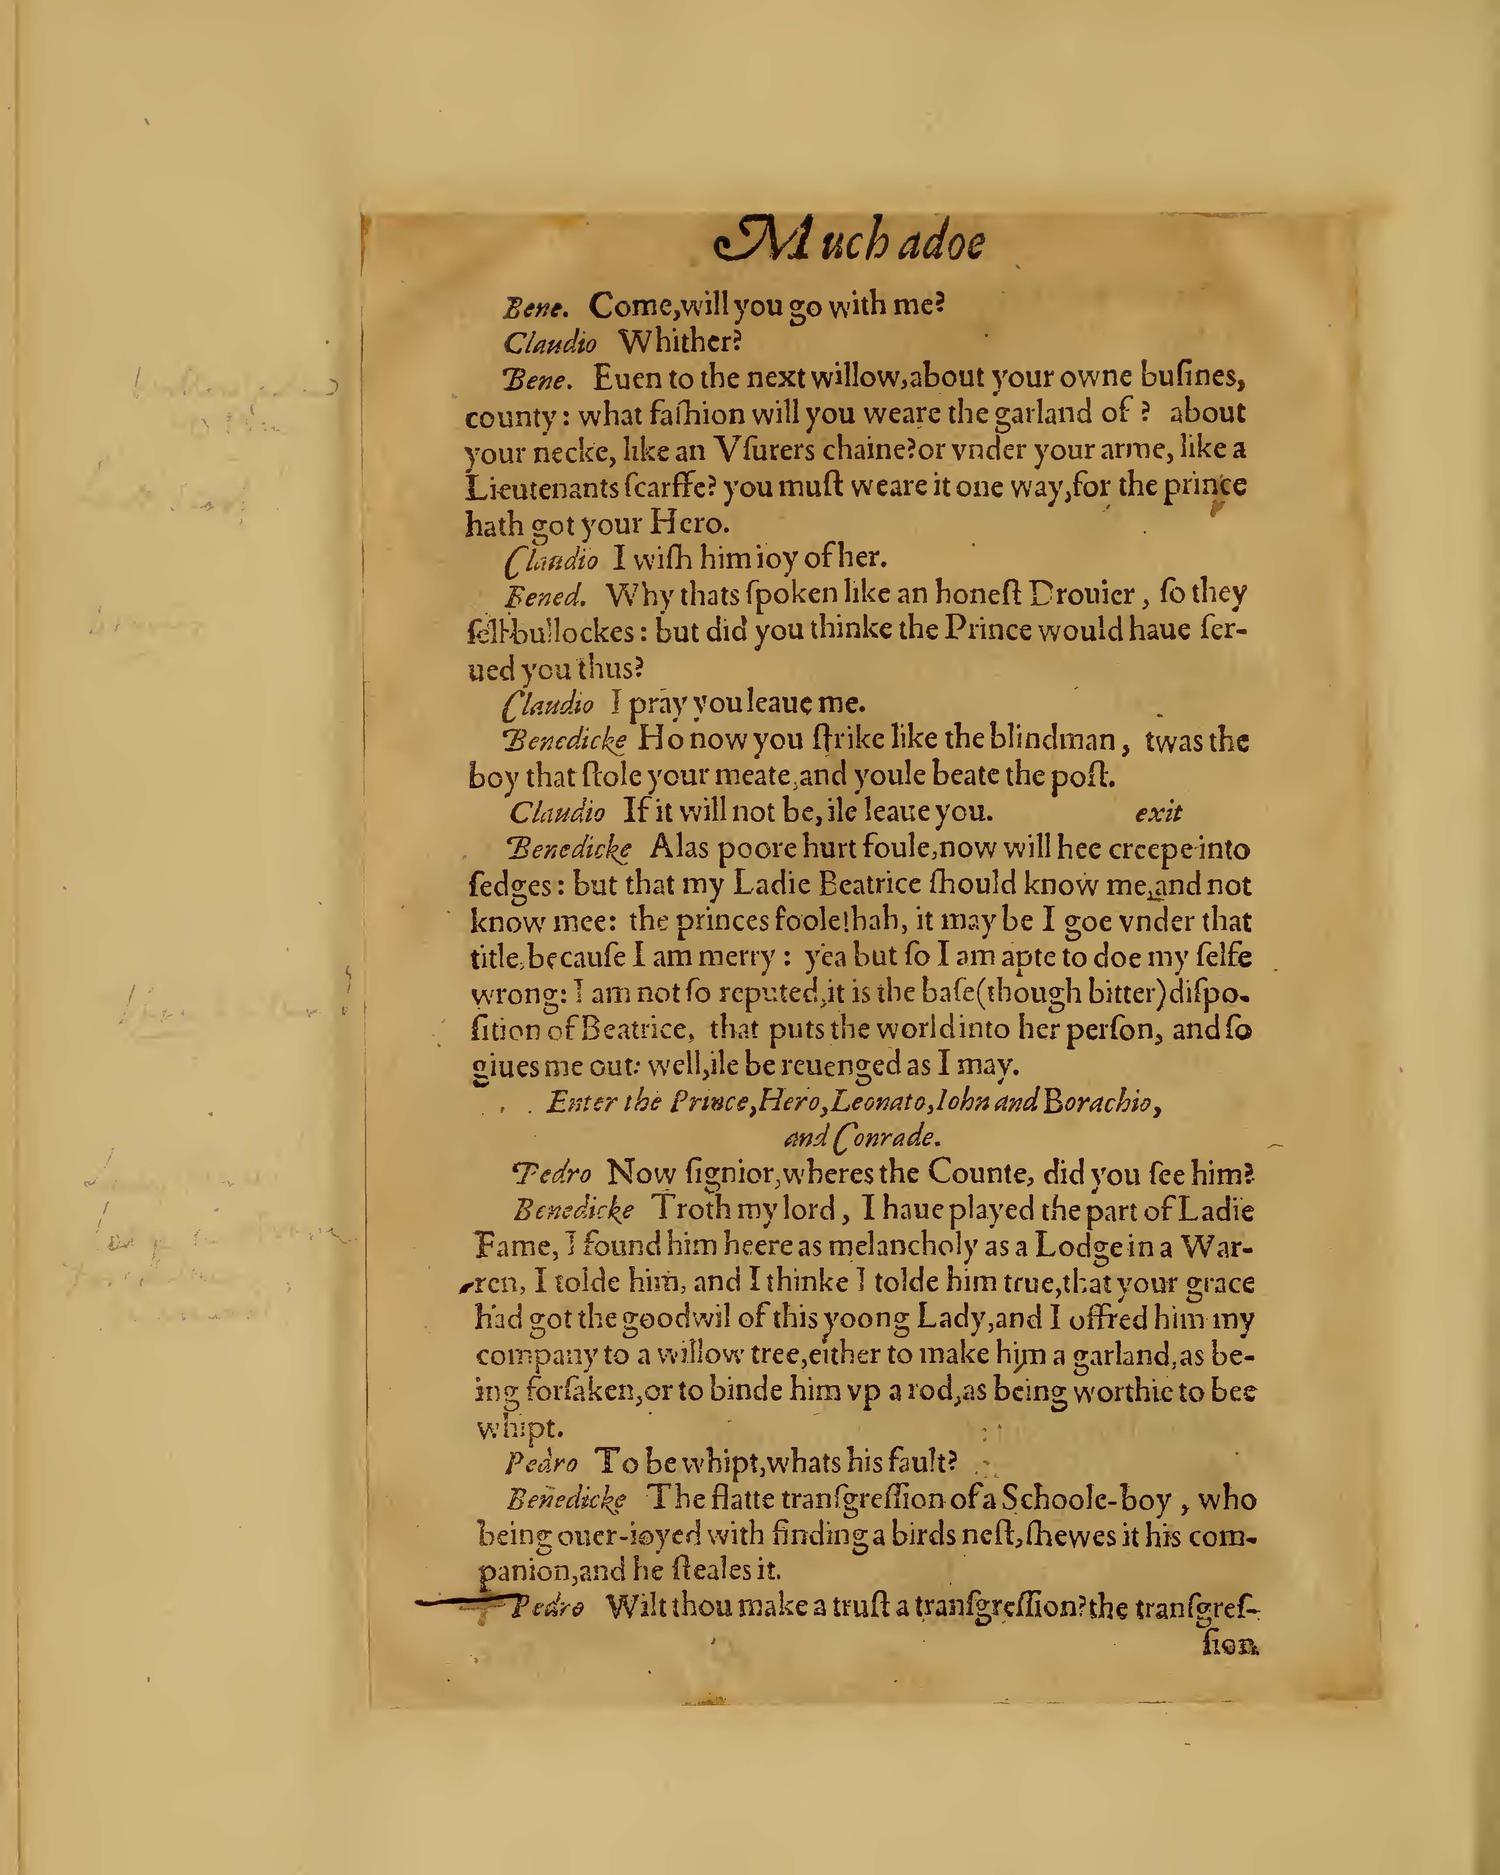 Much adoe
Bene. Come,will you go with me?
Claudio Whither?
Bene. Euen to the next willow,about your owne buſines,
county: what faſhion will you weare the garland of ? about
your necke, like an Vſurers chaine?or vnder your arme, like a
Lieutenants ſcarffe? you muſt weare it one way,for the prince
hath got your Hero.
Claudio I wiſh him ioy of her.
Bened. Why thats ſpoken like an honeſt Drouier, ſo they
ſell bullockes: but did you thinke the Prince would haue ſer-
ued you thus?
Claudio I pray you leaue me.
Benedicke Ho now you ſtrike like the blindman, twas the
boy that ſtole your meate,and youle beate the poſt.
Claudio If it will not be, ile leaue you. exit
Benedicke Alas poore hurt foule,now will hee creepe into
ſedges: but that my Ladie Beatrice ſhould know me,and not
know mee: the princes foole!hah, it may be I goe vnder that
title,becauſe I am merry: yea but ſo I am apte to doe my ſelfe
wrong: I am not ſo reputed,it is the baſe(though bitter)diſpo-
ſition of Beatrice, that puts the world into her perſon, and ſo
giues me out: well,ile be reuenged as I may.
Enter the Prince,Hero,Leonato,Iohn and Borachio,
and Conrade.
Pedro Now ſignior,wheres the Counte, did you ſee him?
Benedicke Troth my lord, I haue played the part of Ladie
Fame, I found him heere as melancholy as a Lodge in a War-
ren, I tolde him, and I thinke I tolde him true,that your grace
had got the goodwil of this yoong Lady,and I offred him my
company to a willow tree,either to make him a garland,as be-
ing forſaken,or to binde him vp a rod,as being worthie to bee
whipt.
Pedro To be whipt,whats his fault?
Benedicke The flatte tranſgreſſion of a Schoole-boy, who
being ouer-ioyed with finding a birds neſt,ſhewes it his com-
panion,and he ſteales it.
Pedro Wilt thou make a truſt a tranſgreſſion?the tranſgreſ-
ſion